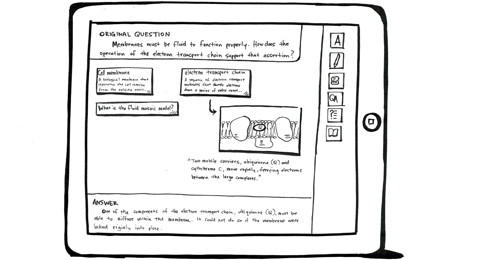 ORIGINAL QUESTION
Membranes must be fluid to function properly. How does the
operation of the electron transport chain support that assertion?
Cell membrane
A biological membrane that
separates the cell interior
from the outside
electron transport chain
A sequence of electron transport
molecules that shuttle electrons
down a series of redox
What is the fluid mosaic model?
"Two mobile carriers, ubiquinone (Q) and
cytochrome C, move rapidly, ferrying electrons
between the large complexes."
ANSWER
One of the components of the electron transport chain, ubiquinone (Q), must be
able to diffuse within the membrane. It could not do so if the membrane were
locked rigidly into place.
A